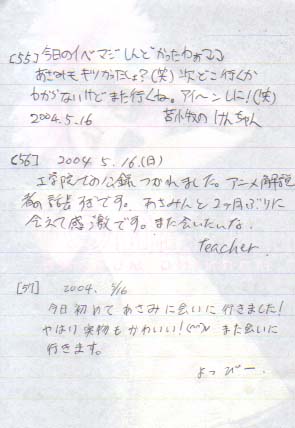 [55] 今日のイベマジしんどかったわぁ〜
あさみもキツかったしょ?(笑)次どこ行くか
わからないけどまた行くね。アイ〜ンしに!(笑)
2004.5.16 苫小牧のけんちゃん
[56] 2004.5.16.(日)
工学院での公録つかれました。アニメ解説
者の話長すぎです。あさみんと2ヶ月ぶりに
会えて感激です。また会いたいな。
teacher.
[57] 2004. 5/16
今日初めてあさみに会いに行きました!
やはり実物もかわいい!(^^)v また会いに
行きます。
よっぴー.